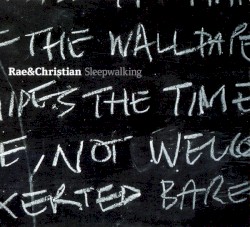 THE WALLPAPE
Rae&Christian Sleepwalking
THE TIME
E, NOT WELC
XERTED BARE